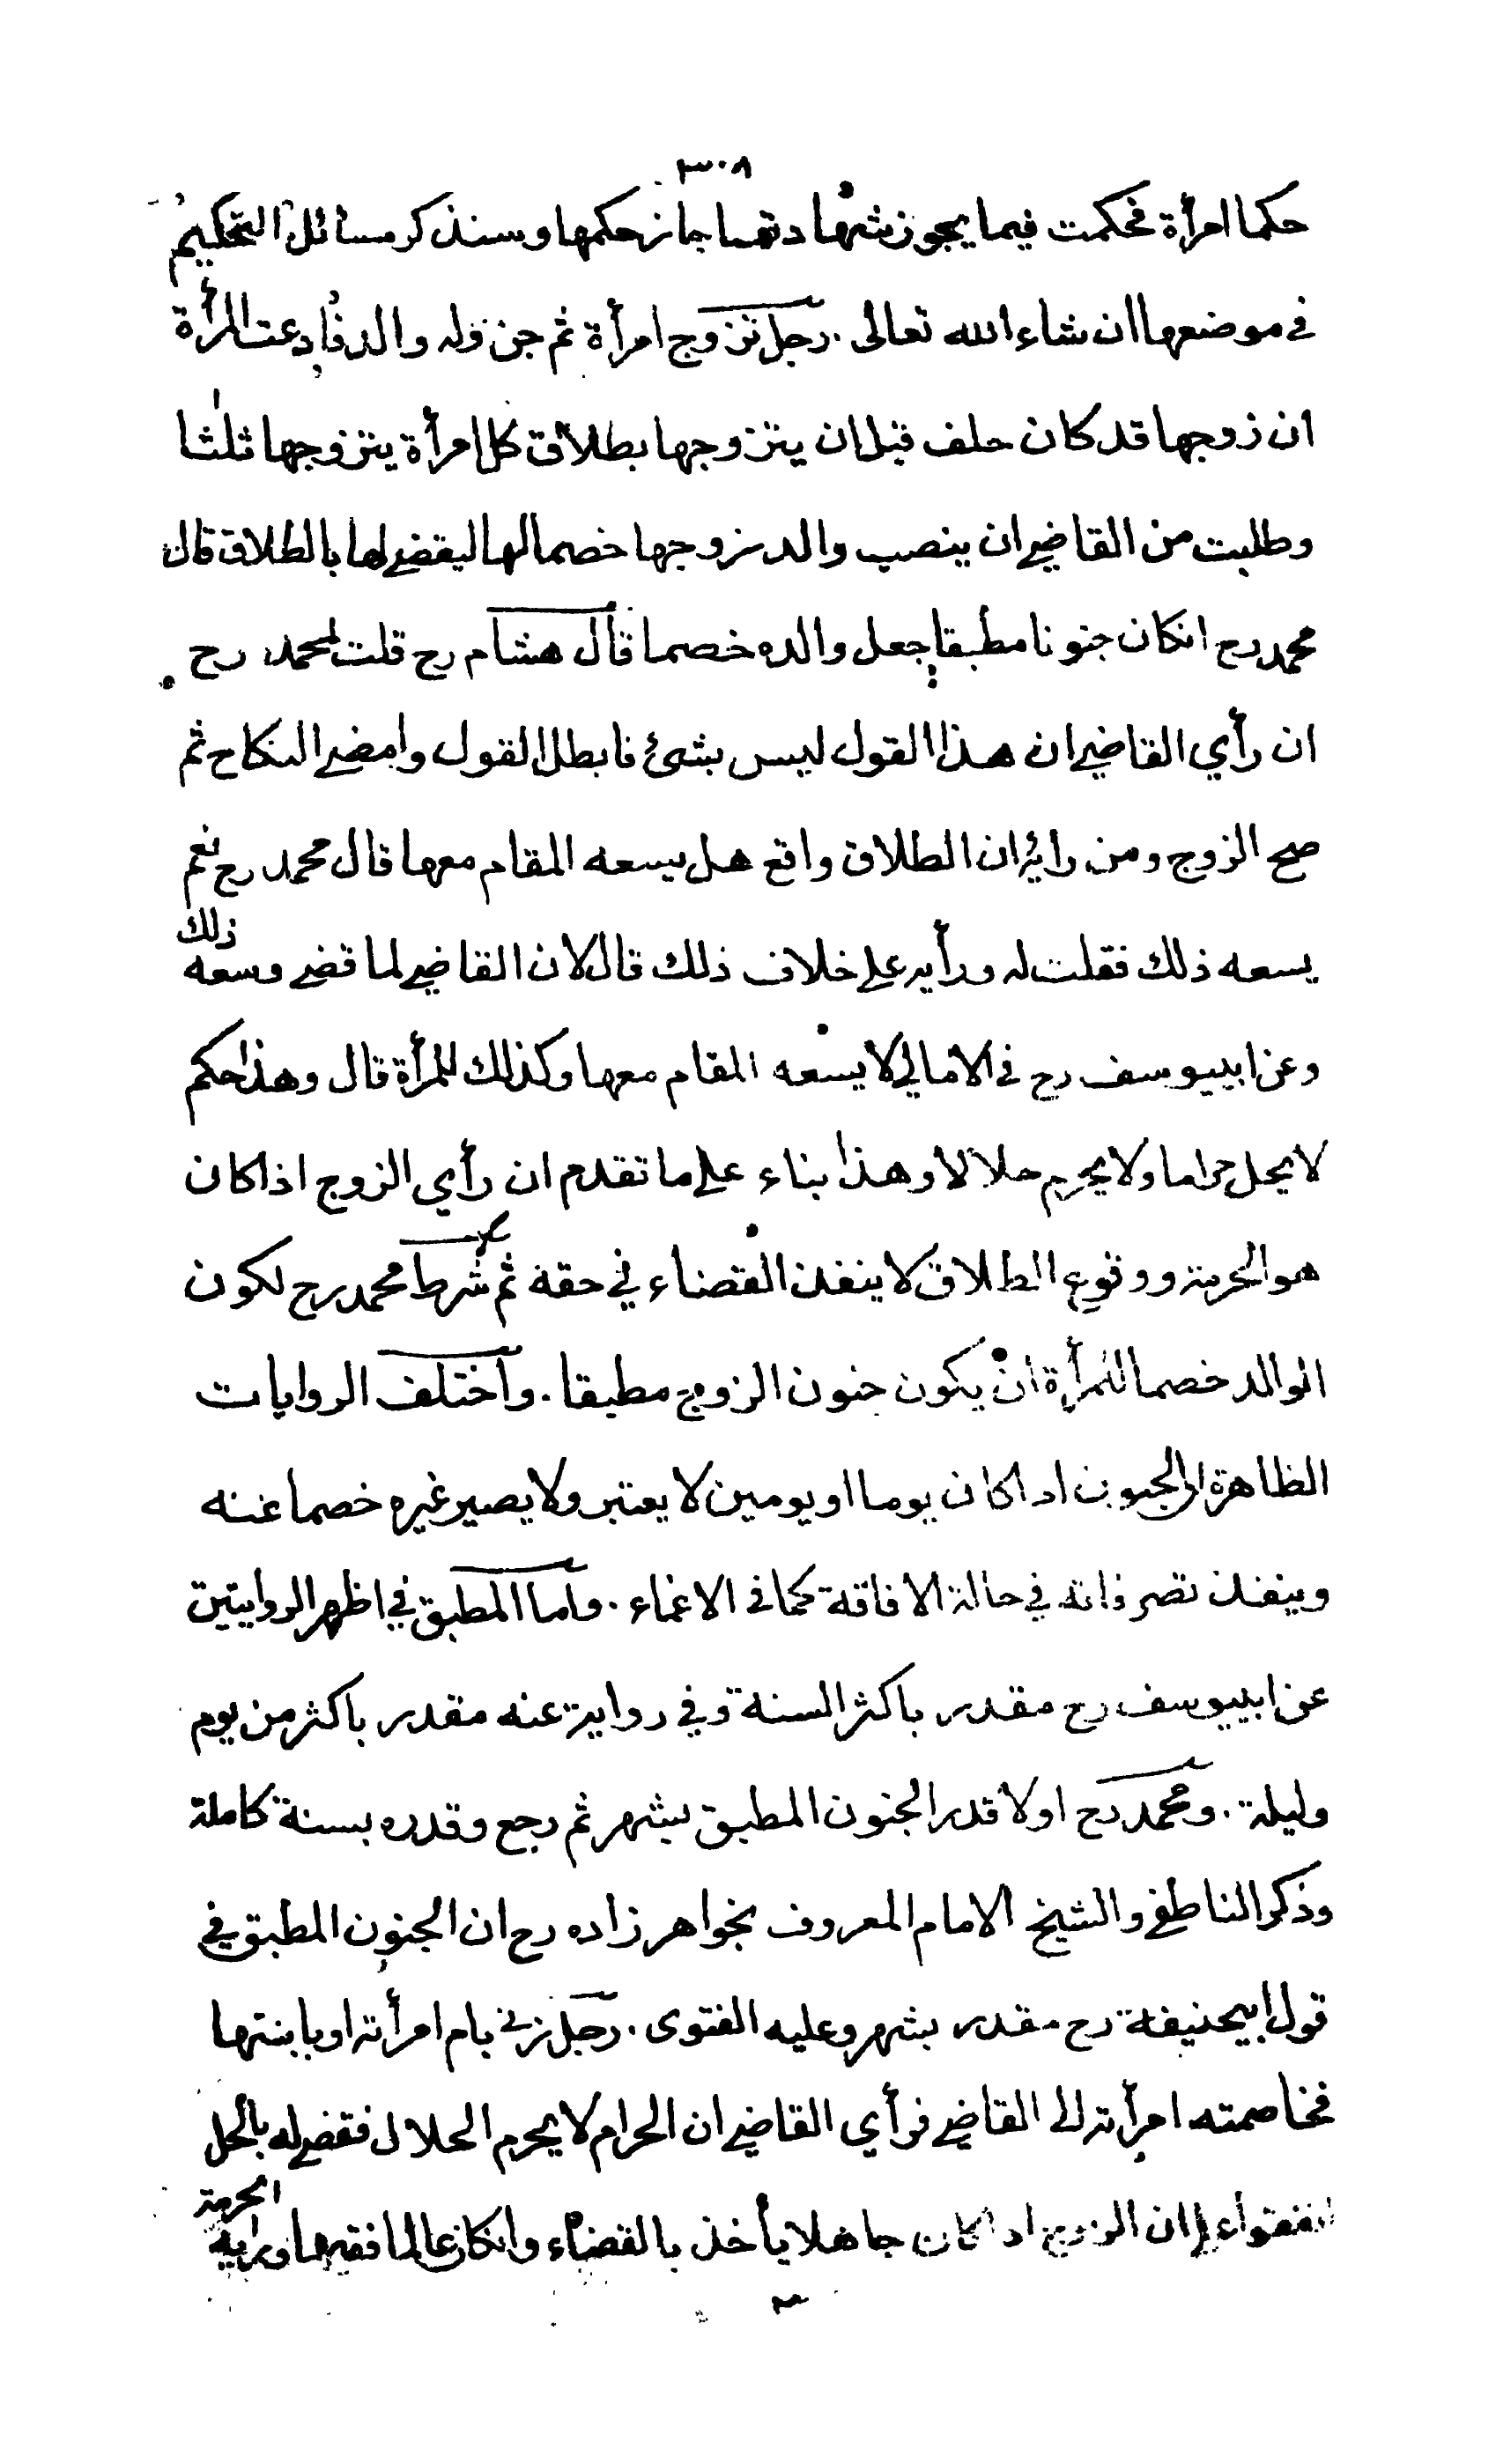 ٣٠٨
حكما امرأة فحكمت فيما يجوز شهادتهما جاز حكمها وسنذكر مسائل التحكيم
في موضعها ان شاء الله تعالى . رجل تزوج امرأة ثم جن وله والد فادعت المرأة
ان زوجها قد كان حلف قبل ان يتزوجها بطلاق كل امرأة يتزوجها ثلثا
وطلبت من القاضي ان ينصب والد زوجها خصما لها ليقضي لها بالطلاق قال
محمد رح انكان جنونا مطبقا جعل والده خصما قال هشام رح قلت لمحمد رح
ان رأي القاضي ان هذا القول ليس بشئ فابطل القول وامضي النكاح ثم
صح الزوج ومن رائه ان الطلاق واقع هل يسعه المقام معها قال محمد رح نعم
يسعه ذلك فقلت له ورأيه علي خلاف ذلك قال لان القاضي لما قضي وسعه ذلك
وعن ابييوسف رح في الامالي لا يسعه المقام معها وكذلك للمرأة قال وهذا حكم
لا يحل حراما ولا يحرم حلالا وهذا بناء علي ما تقدم ان رأي الزوج اذا كان
هو الحرمة ووقوع الطلاق لا ينفذ القضاء في حقه ثم شرط محمد رح لكون
الوالد خصما للمرأة ان يكون جنون الزوج مطبقا . واختلف الروايات
الظاهرة ان الجنون اذا كان يوما او يومين لا يعتبر ولا يصير غيره خصما عنه
وينفذ تصرفاته في حالة الافاقة كما في الاغماء . واما المطبق في اظهر الروايتين
عن ابييوسف رح مقدر باكثر السنة وفي رواية عنه مقدر باكثر من يوم
وليلة . ومحمد رح اولا قدر الجنون المطبق بشهر ثم رجع وقدره بسنة كاملة
وذكر الناطفي والشيخ الامام المعروف بخواهر زاده رح ان الجنون المطبق في
قول ابيحنيفة رح مقدر بشهر وعليه الفتوى . رجل زنى بام امرأته او بابنتها
فخاصمته امرأته الى القاضي فرأي القاضي ان الحرام لا يحرم الحلال فقضي له بالحل
اتفقوا علي ان الزوج اذا كان جاهلا يأخذ بالقضاء وانكان عالما فقيها ورايه الحرمة